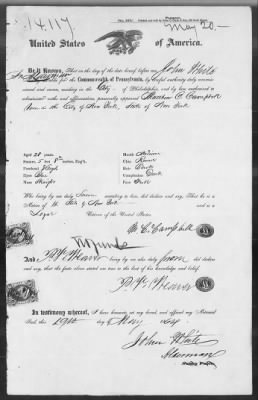 14117
May 20
United States of America.
Be it Known, That on the day of the date hereof before me John White
Alderman for the Commonwealth of Pennsylvania, by lawful authority duly commis-
sioned and sworn, residing in the City of Philadelphia, and by law authorized to
administer oaths and affirmations, personally appeared C. Campbell
Born in the City of New York, State of New York
Aged 28 years
Stature, 5 feet 8 inches, Eng'h
Forehead High
Eyes Blue
Nose Straight
Mouth Medium
Chin Round
Hair Dark
Complexion Dark
Face Oval
Who being by me duly Sworn according to law, did declare and say: That he is a
Native of the State of New York and a
Loyal Citizen of the United States.
M. C. Campbell
And Weaver being by me also duly sworn did
declare and say, that the facts above stated are true to the best of his knowledge and belief.
Weaver
In testimony whereof, I have hereunto set my hand and affixed my Notarial
Seal this 19th day of May 1864
John White
Alderman